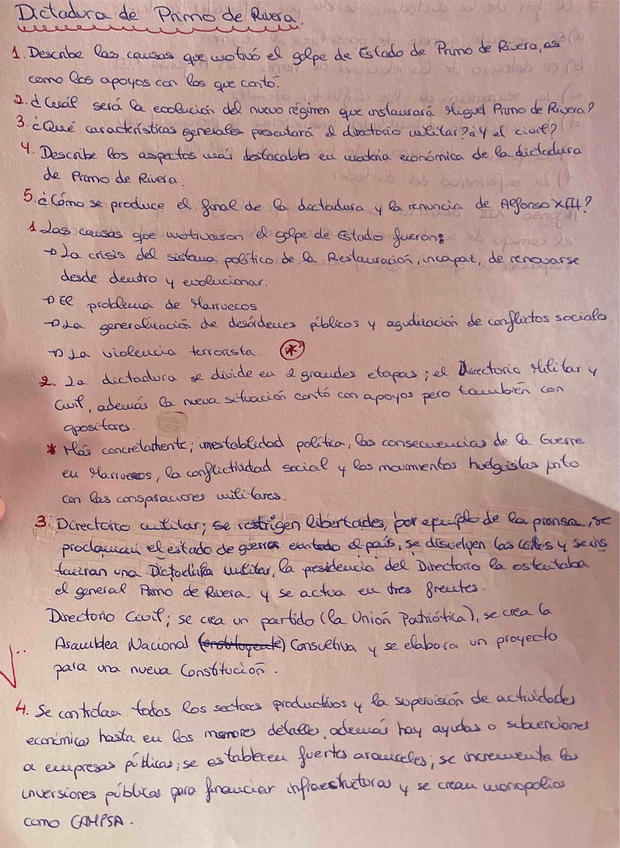 Dictadura de Primo de Rivera.
1. Describe las causas que motivó el golpe de Estado de Primo de Rivera, así
como los apoyos con los que contó.
2. ¿Cuál será la evolución del nuevo régimen que instaurará Miguel Primo de Rivera?
3. ¿Qué características generales presentará el directorio militar? ¿Y el civil?
4. Describe los aspectos más destacables en materia económica de la dictadura
de Primo de Rivera.
5. ¿Cómo se produce el final de la dictadura y la renuncia de Alfonso XIII?
1. Las causas que motivaron el golpe de Estado fueron:
→ La crisis del sistema político de la Restauración, incapat, de renovarse
desde dentro y evolucionar.
→ El problema de Marruecos
→ La generalización de desórdenes públicos y agudización de conflictos sociales
→ La violencia terrorista. *
2. La dictadura se divide en 2 grandes etapas; el Directorio Militar y
Civil, además la nueva situación contó con apoyos pero también con
opositores.
* Más concretamente; inestabilidad política, las consecuencias de la Guerra
en Marruecos, la conflictividad social y los movimientos huelguistas junto
con las conspiraciones militares.
3. Directorio militar; se restrigen libertades, por ejemplo de la prensa, se
proclaman el estado de guerra en todo el país, se disuelven las cortes y se ins
tauran una Dictadura militar, la presidencia del Directorio la ostentaba
el general Primo de Rivera y se actua en tres frentes.
Directorio Civil; se crea un partido (la Unión Patriótica), se crea la
Asamblea Nacional (constituyente) Consultiva y se elabora un proyecto
para una nueva Constitución.
4. Se controlan todos los sectores productivos y la supervisión de actividades
económicas hasta en los menores detalles, además hay ayudas o subvenciones
a empresas públicas; se establecen fuertes aranceles, se incrementa las
inversiones públicas para financiar infraestructuras y se crean monopolios
como CAMPSA.